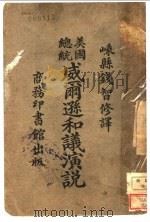 嵊縣錢智修譯
美國
總統
威爾遜和議演說
商務印書館出版